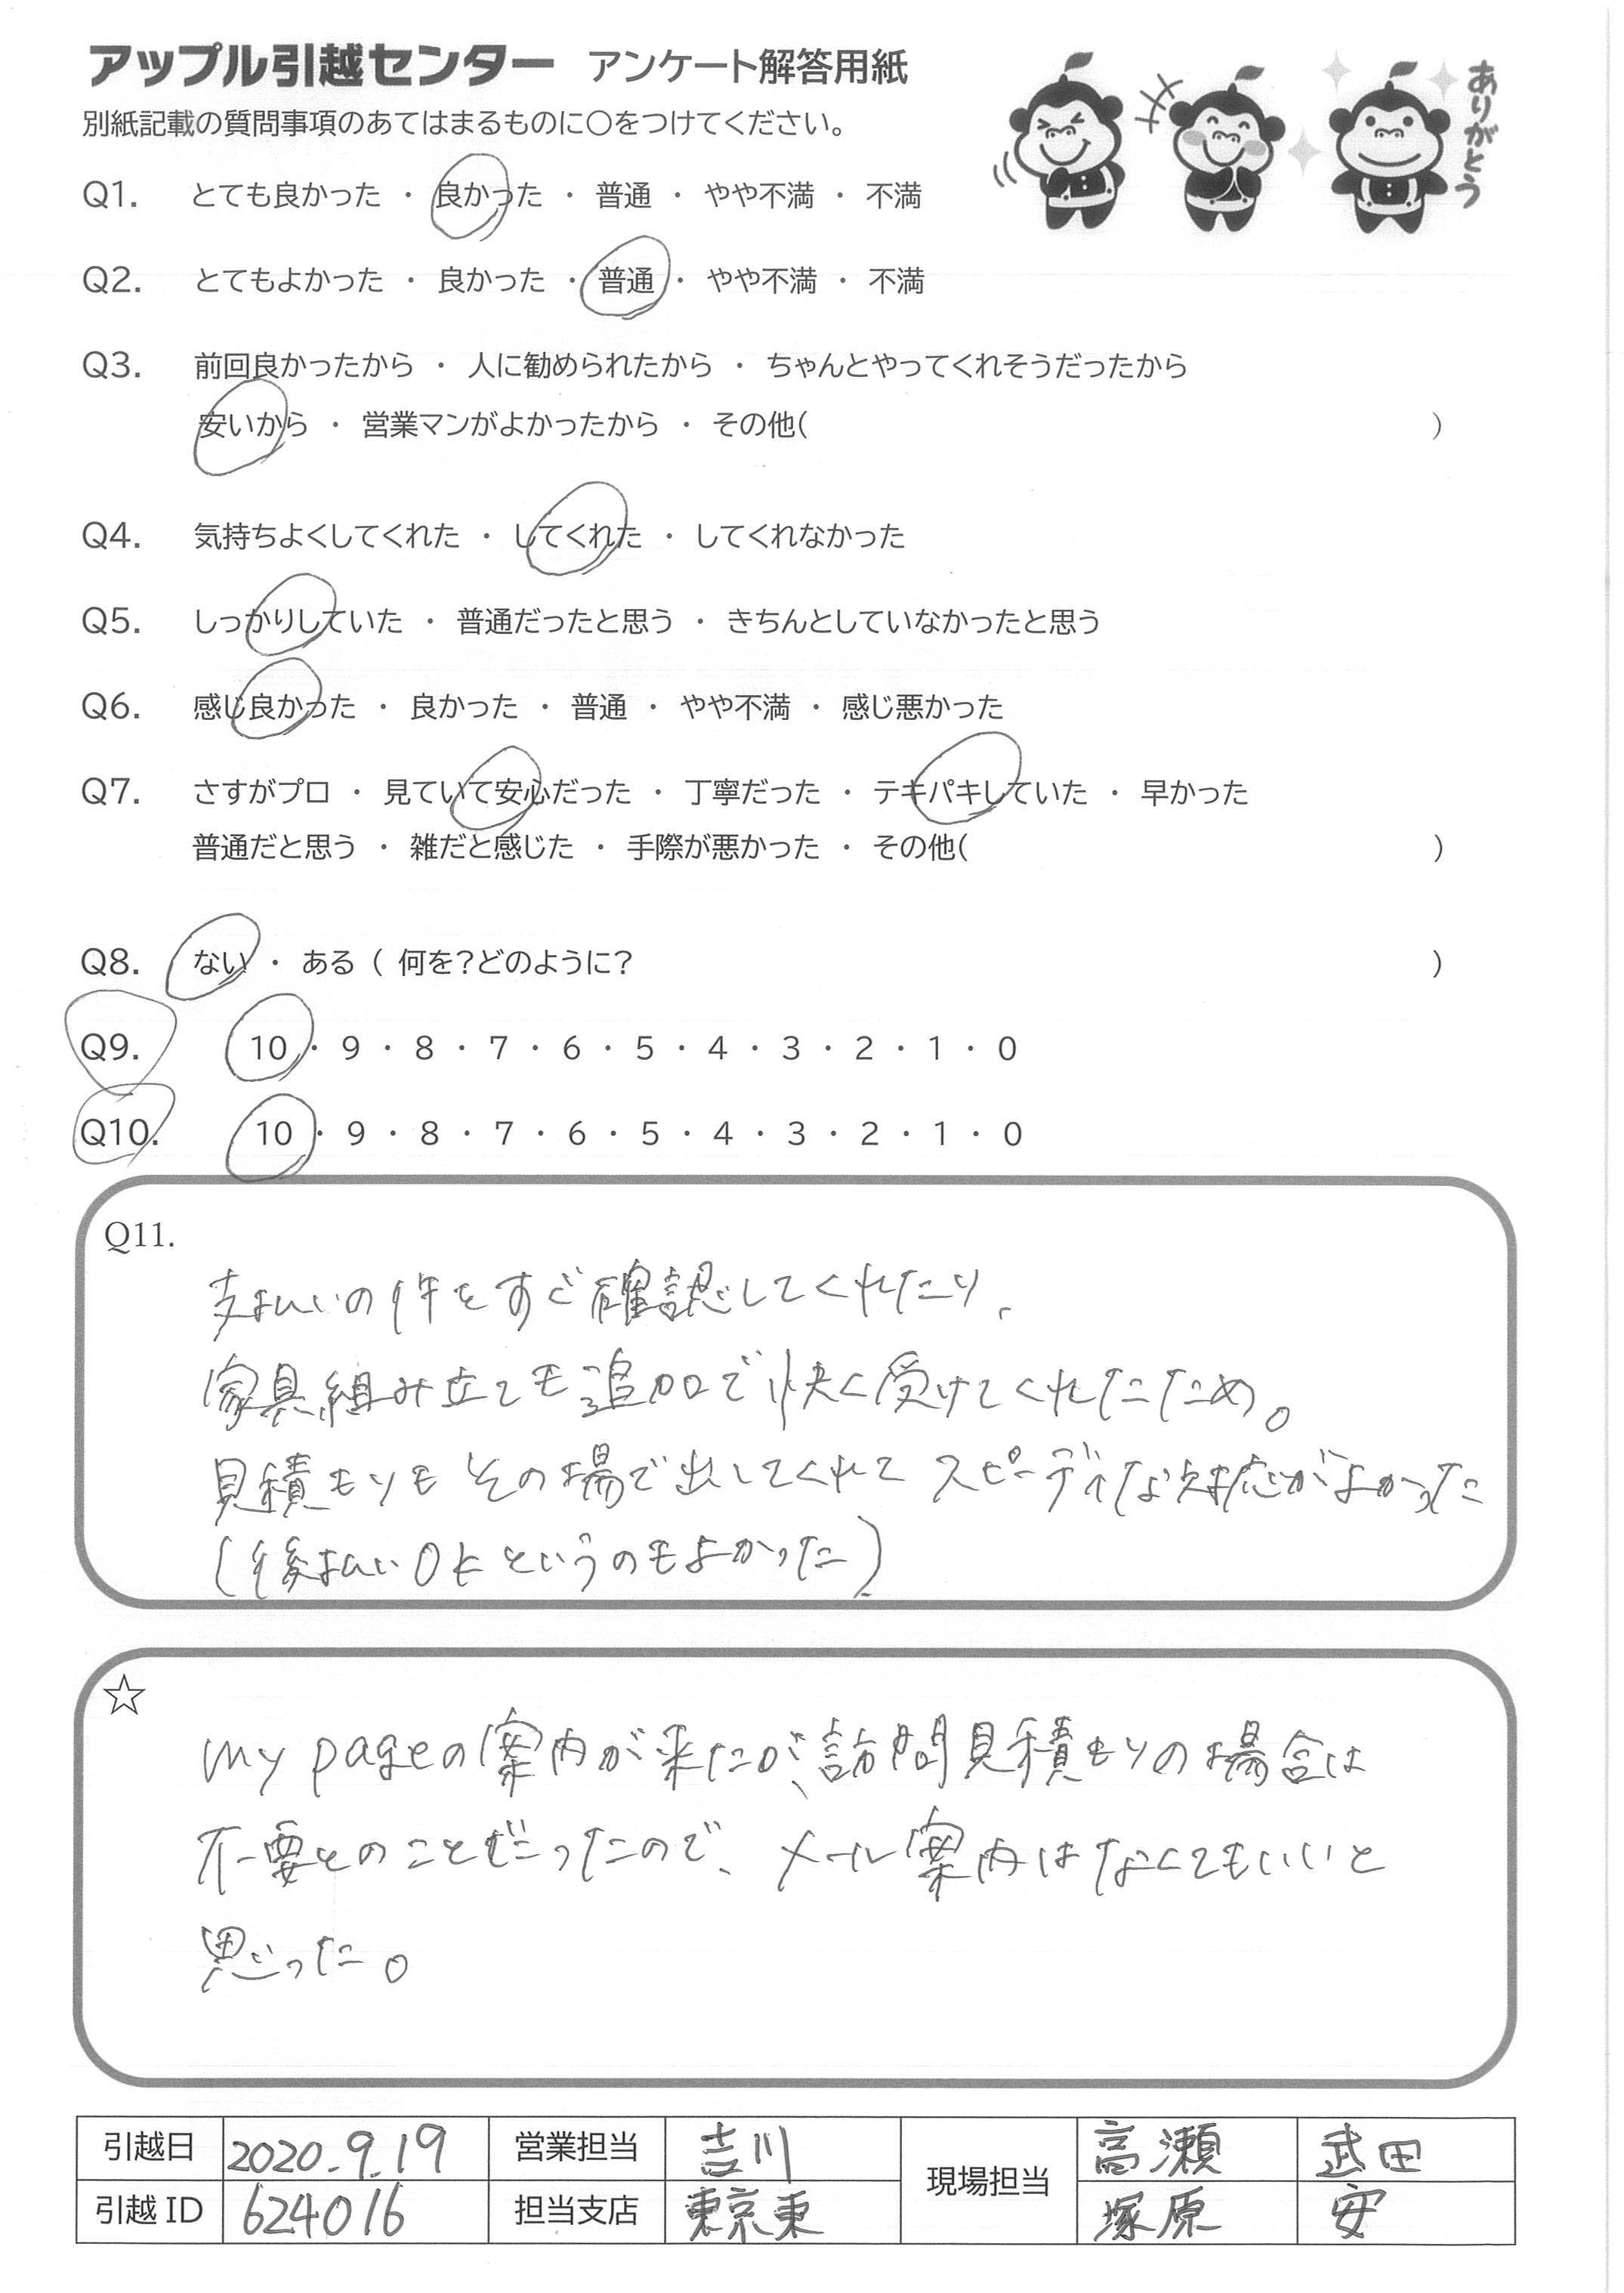 アップル引越センター アンケート解答用紙
別紙記載の質問事項のあてはまるものに○をつけてください。
ありがとう
Q1. とても良かった ・ 良かった ・ 普通 ・ やや不満 ・ 不満
Q2. とてもよかった ・ 良かった ・ 普通 ・ やや不満 ・ 不満
Q3. 前回良かったから ・ 人に勧められたから ・ ちゃんとやってくれそうだったから
安いから ・ 営業マンがよかったから ・ その他( )
Q4. 気持ちよくしてくれた ・ してくれた ・ してくれなかった
Q5. しっかりしていた ・ 普通だったと思う ・ きちんとしていなかったと思う
Q6. 感じ良かった ・ 良かった ・ 普通 ・ やや不満 ・ 感じ悪かった
Q7. さすがプロ ・ 見ていて安心だった ・ 丁寧だった ・ テキパキしていた ・ 早かった
普通だと思う ・ 雑だと感じた ・ 手際が悪かった ・ その他( )
Q8. ない ・ ある ( 何を?どのように? )
Q9. 10 ・ 9 ・ 8 ・ 7 ・ 6 ・ 5 ・ 4 ・ 3 ・ 2 ・ 1 ・ 0
Q10. 10 ・ 9 ・ 8 ・ 7 ・ 6 ・ 5 ・ 4 ・ 3 ・ 2 ・ 1 ・ 0
Q11.
支払いの件をすぐ確認してくれたり、
家具組み立ても追加で快く受けてくれたため。
見積もりもその場で出してくれてスピーディな対応がよかった
(後払いOKというのもよかった)
☆
my pageの案内が来たが、訪問見積もりの場合は
不要とのことだったので、メール案内はなくてもいいと
思った。
引越日 2020.9.19 営業担当 吉川 現場担当 高瀬 武田
引越ID 624016 担当支店 東京東 塚原 安